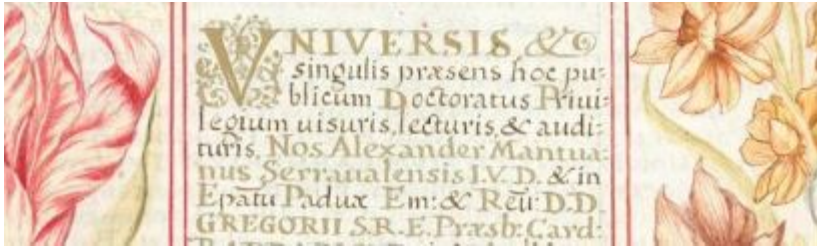 VNIVERSIS, &
singulis præsens hoc pu=
blicum Doctoratus Priui=
legium uisuris, lecturis, & audi=
turis, Nos Alexander Mantua=
nus Serraualensis I.V.D. & in
Epātu Paduæ Em: & Reū: D.D.
GREGORII S.R.E. Præsb: Card: